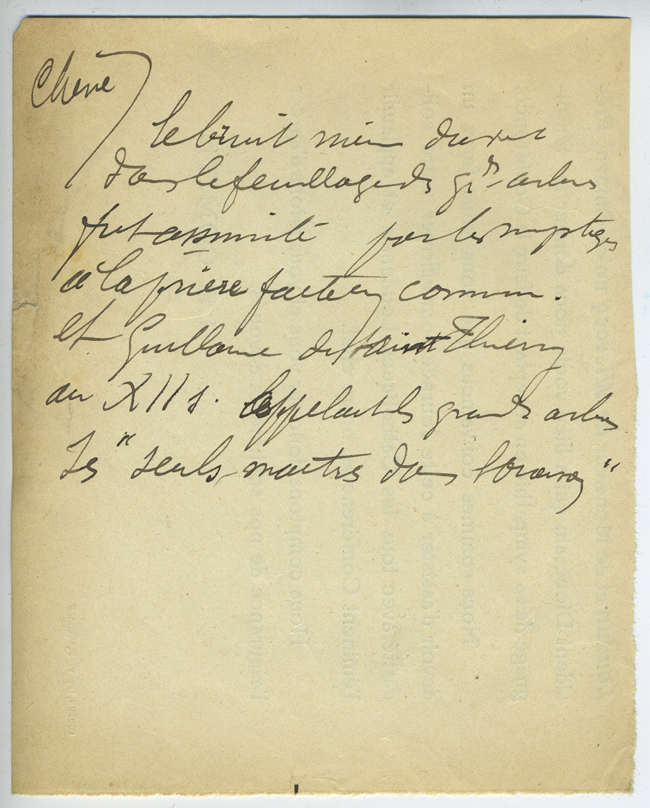 Chêne
le bruit même du vent
dans le feuillage des gds arbres
fut assimilé par les mystiques
à la prière faite en commun.
et Guillaume de Saint Thierry
au XII s. appelait les grands arbres
ses "seuls maîtres dans